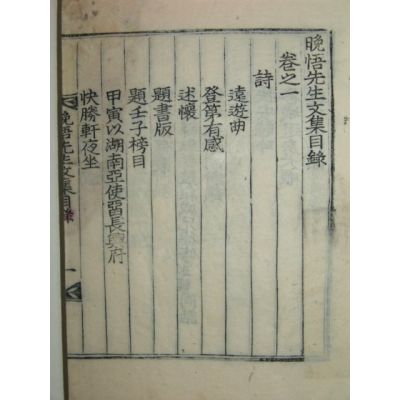 晚悟先生文集目錄
卷之一
詩
遠遊曲
登第有感
述懷
題書版
題壬子榜目
甲寅以湖南亞使莅長興府
快勝軒夜坐
晚悟先生文集目錄 一